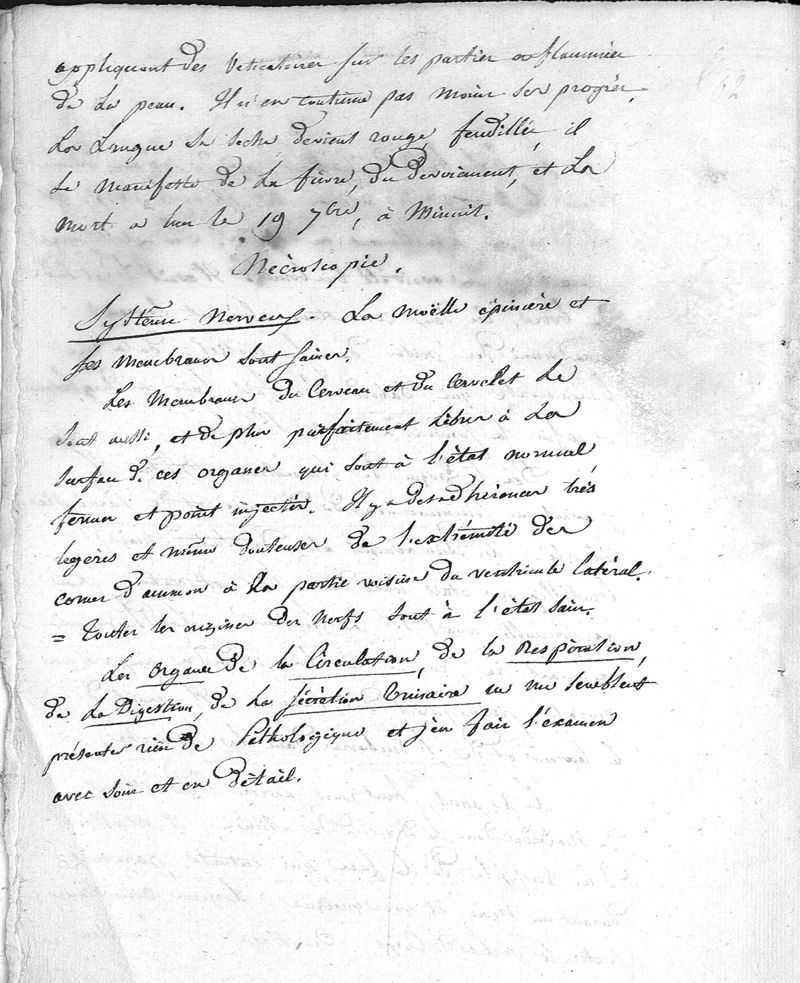 appliquent des vésicatoires sur les parties enflammées
de la peau. Il n'en continue pas moins ses progrès.
La langue se sèche, devient rouge, fendillée, il
se manifeste de la fièvre, du dévoiement, et la
mort a lieu le 19 7bre, à Minuit.
Nécroscopie.
Système nerveux. La moëlle épinière et
ses membranes sont saines.
Les membranes du cerveau et du cervelet le
sont aussi, et de plus parfaitement libres à la
surface de ces organes qui sont à l'état normal
fermes et point injectés. Il y a des adhérences très
légères et même douteuses de l'extrémité des
cornes d'ammon à la partie voisine du ventricule latéral.
= Toutes les origines des nerfs sont à l'état sain.
Les organes de la Circulation, de la Respiration,
de la Digestion, de la sécrétion Urinaire ne me semblent
présenter rien de Pathologique et j'en fais l'examen
avec soin et en détail.
62